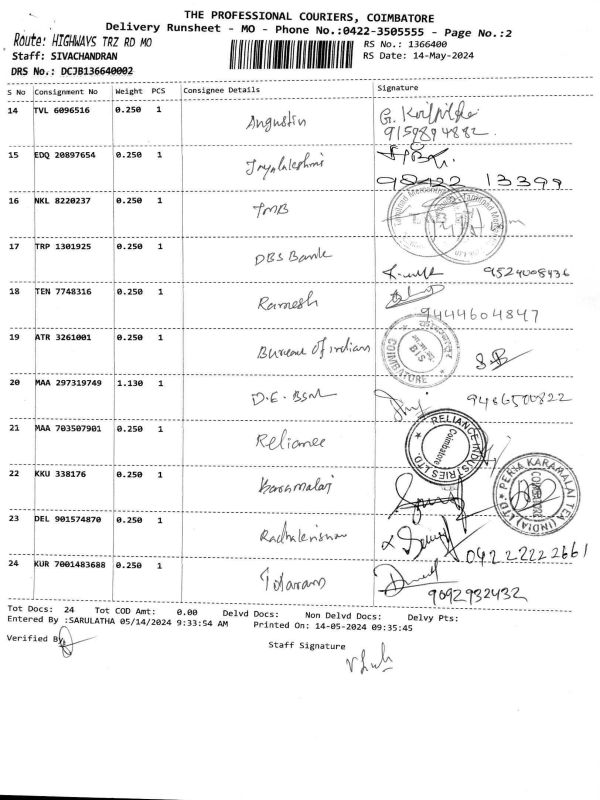 THE PROFESSIONAL COURIERS, COIMBATORE
Delivery Runsheet - MO - Phone No.:0422-3505555 - Page No.:2
Route: HIGHWAYS TRZ RD MO
RS No.: 1366400
Staff: SIVACHANDRAN
RS Date: 14-May-2024
DRS No.: DCJB136640002
S No Consignment No Weight PCS Consignee Details Signature
14 TVL 6096516 0.250 1 Angustin G.
9159894882.
15 EDQ 20897654 0.250 1 Jayalakshmi
98422 13399
16 NKL 8220237 0.250 1 TMB
17 TRP 1301925 0.250 1 DBS Bank
9524008436
18 TEN 7748316 0.250 1 Ramesh
9444604847
19 ATR 3261001 0.250 1 Bureau of indian
COIMBATORE BIS
20 MAA 297319749 1.130 1 D.E. BSNL
9486500822
21 MAA 703507901 0.250 1 Reliance
RELIANCE INDUSTRIES LTD. Coimbatore
22 KKU 338176 0.250 1 Karamalai
PERIA KARAMALAI TEA (INDIA) LTD COIMBATORE
23 DEL 901574870 0.250 1 Radhakrishnan
0422 2222661
24 KUR 7001483688 0.250 1 Tolaram
9092932432
Tot Docs: 24 Tot COD Amt: 0.00 Delvd Docs: Non Delvd Docs: Delvy Pts:
Entered By :SARULATHA 05/14/2024 9:33:54 AM Printed On: 14-05-2024 09:35:45
Verified By
Staff Signature